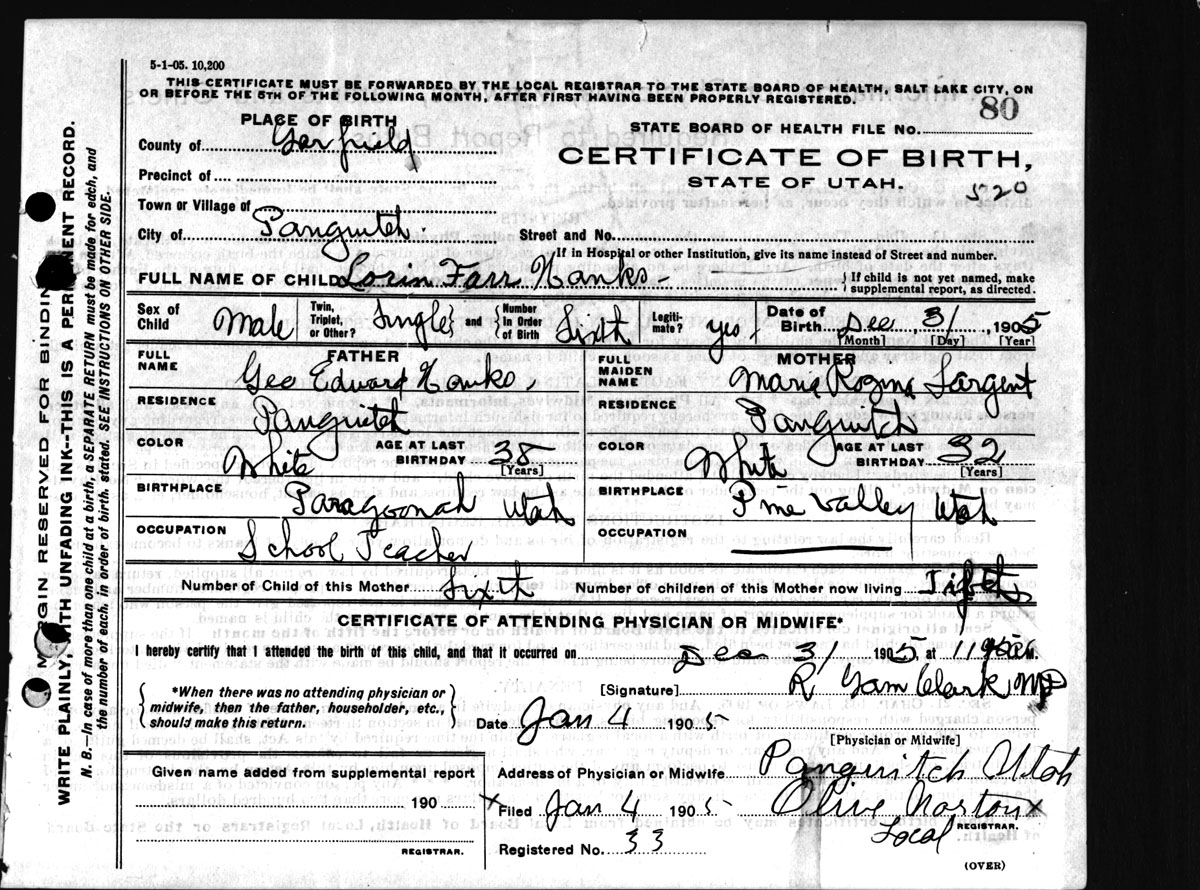 5-1-05. 10,200
THIS CERTIFICATE MUST BE FORWARDED BY THE LOCAL REGISTRAR TO THE STATE BOARD OF HEALTH, SALT LAKE CITY, ON
OR BEFORE THE 5TH OF THE FOLLOWING MONTH, AFTER FIRST HAVING BEEN PROPERLY REGISTERED.
80
PLACE OF BIRTH
STATE BOARD OF HEALTH FILE No.
County of Garfield
CERTIFICATE OF BIRTH,
Precinct of
STATE OF UTAH.
520
Town or Village of
City of Panguitch.
Street and No.
If in Hospital or other Institution, give its name instead of Street and number.
FULL NAME OF CHILD Lorin Farr Hanks -
{ If child is not yet named, make supplemental report, as directed.
Sex of Child Male Twin, Triplet, or Other? Single } and { Number in Order of Birth Sixth Legiti-mate? yes Date of Birth Dec, 31, 1905
[Month] [Day] [Year]
FATHER
MOTHER
FULL NAME Geo Edward Hanks,
FULL MAIDEN NAME Marie Rozina Sargent
RESIDENCE Panguitch
RESIDENCE Panguitch
COLOR White AGE AT LAST BIRTHDAY 38 [Years]
COLOR White AGE AT LAST BIRTHDAY 32 [Years]
BIRTHPLACE Paragoonah Utah
BIRTHPLACE Pine Valley Utah
OCCUPATION School Teacher
OCCUPATION
Number of Child of this Mother Sixth
Number of children of this Mother now living
CERTIFICATE OF ATTENDING PHYSICIAN OR MIDWIFE*
I hereby certify that I attended the birth of this child, and that it occurred on Dec 31 1905, at M.
{ *When there was no attending physician or midwife, then the father, householder, etc., should make this return. }
[Signature] R Gam Clark MD
Date Jan 4 1905
[Physician or Midwife]
Given name added from supplemental report
Address of Physician or Midwife Panguitch Utah
190
x Filed Jan 4 1905 Olive Norton x
Local REGISTRAR.
REGISTRAR.
Registered No. 33
(OVER)
MARGIN RESERVED FOR BINDING
WRITE PLAINLY, WITH UNFADING INK--THIS IS A PERMANENT RECORD.
N. B.—In case of more than one child at a birth, a SEPARATE RETURN must be made for each, and
the number of each, in order of birth, stated. SEE INSTRUCTIONS ON OTHER SIDE.